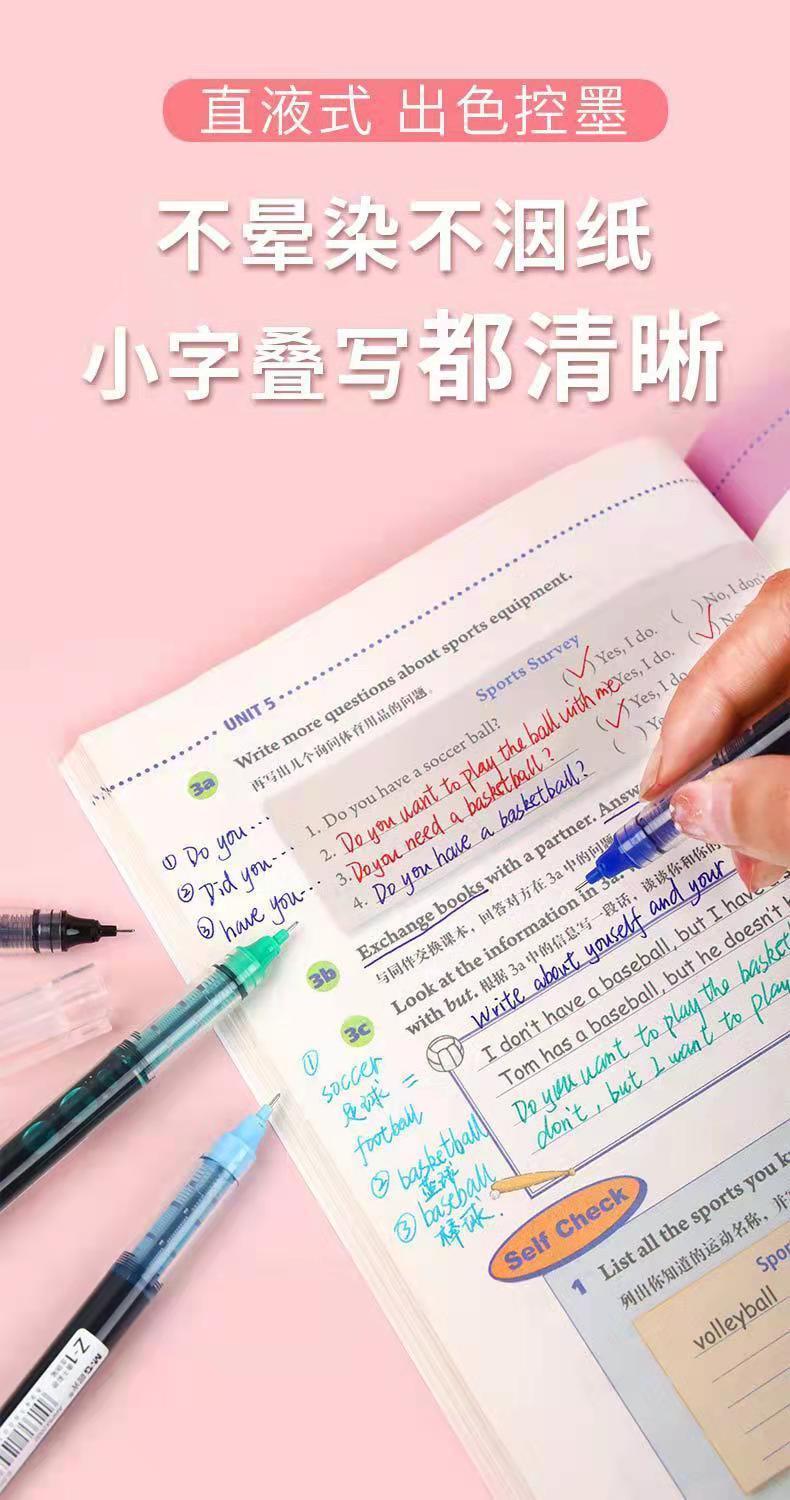 直液式 出色控墨
不晕染不洇纸
小字叠写都清晰
UNIT 5
3a
Write more questions about sports equipment.
再写出几个询问体育用品的问题。
Sports Survey
1. Do you have a soccer ball?
(✓) Yes, I do. ( ) No, I don't
2. Do you want to play the ball with me
Yes, I do. (✓) No
3. Do you need a basketball?
(✓) Yes, I do
4. Do you have a basketball?
( ) Ye
① Do you...
② Did you...
③ have you...
3b
Exchange books with a partner. Answ
与同伴交换课本，回答对方在 3a 中的问题
3c
Look at the information in 3a.
with but. 根据 3a 中的信息写一段话，谈谈你和你的
Write about youself and your
I don't have a baseball, but I have
Tom has a baseball, but he doesn't
Do you want to play the basket
don't, but I want to play
① soccer
足球 =
football
② basketball
篮球
③ baseball
棒球.
Self Check
1 List all the sports you k
列出你知道的运动名称，并
Spor
volleyball
M&G
Z-1